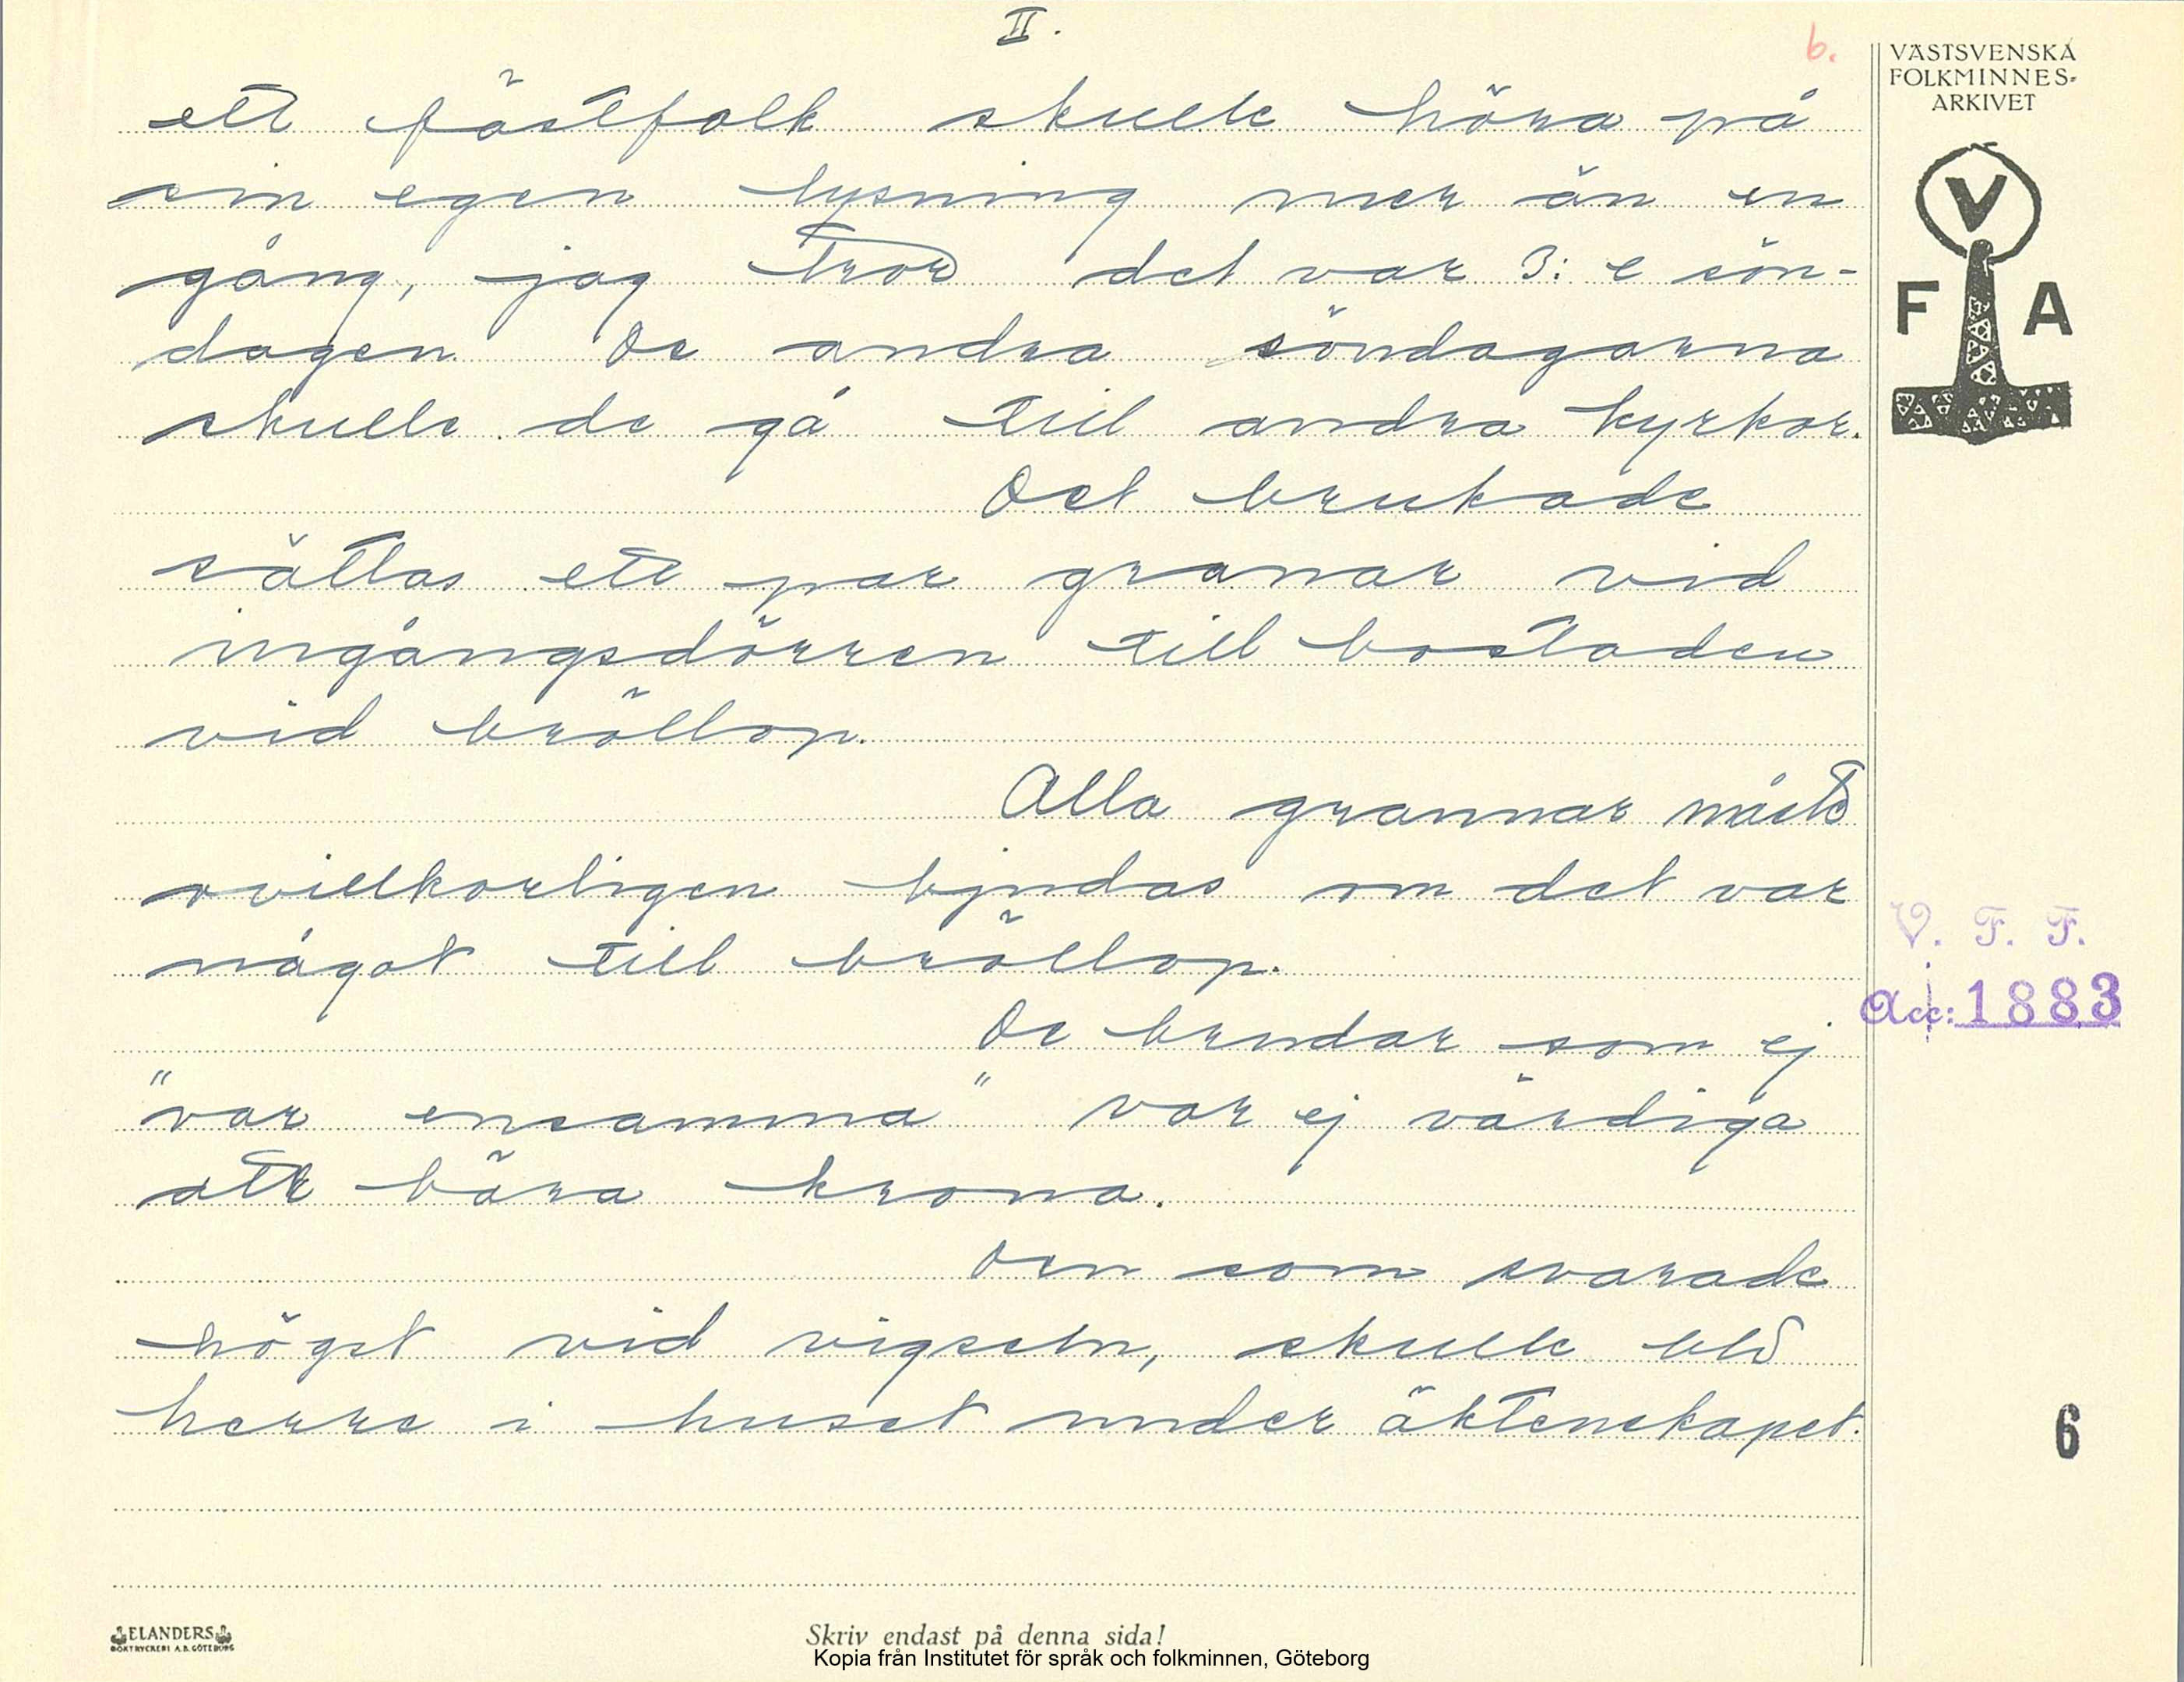 II.
6.
ett fästfolk skulle höra på
sin egen lysning mer än en
gång, jag tror det var 3:e sön-
dagen De andra söndagarna
skulle de gå till andra kyrkor.
Det brukade
sättas ett par granar vid
ingångsdörren till bostaden
vid bröllop.
Alla grannar måste
ovillkorligen bjudas om det var
något till bröllop.
De brudar som ej
"var ensamma" var ej värdiga
att bära krona.
Den som svarade
högst vid vigseln, skulle bli
herre i huset under äktenskapet.
VÄSTSVENSKA
FOLKMINNES-
ARKIVET
V
F A
V. F. F.
Acc: 1883
6
ELANDERS
BOKTRYCKERI A.B. GÖTEBORG
Skriv endast på denna sida!
Kopia från Institutet för språk och folkminnen, Göteborg